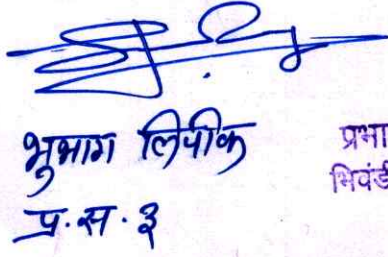 भुभाग लिपीक
प्र. स. ३
प्रभा
भिवंडी